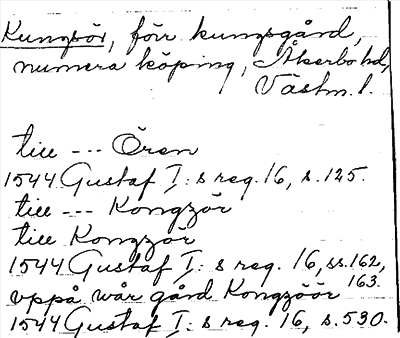 Kungsör, förr kungsgård,
numera köping, Åkerbo hd,
Västm. l.
till --- Ören
1544 Gustaf I:s reg. 16, s. 125.
till --- Kongzör
till Kongzör
1544 Gustaf I:s reg. 16, ss. 162,
163.
vppå wår gård Kongzöör
1544 Gustaf I:s reg. 16, s. 530.